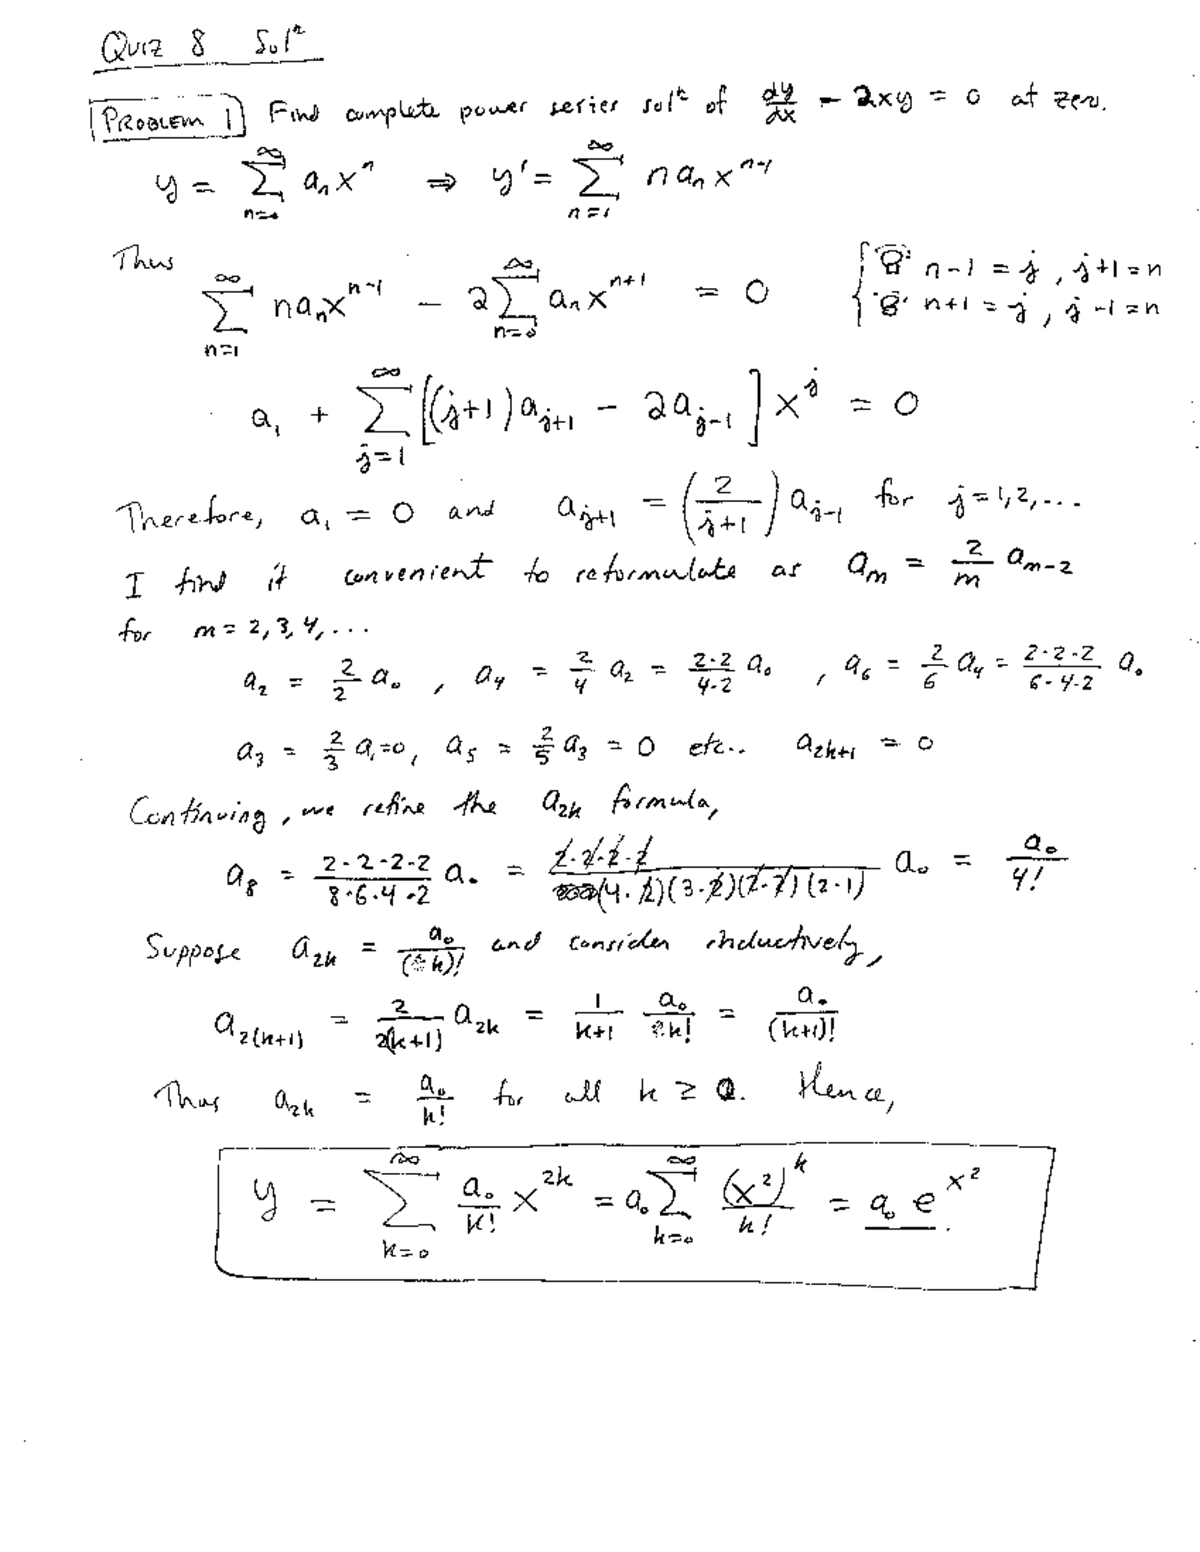 Quiz 8 Solⁿ
PROBLEM 1 Find complete power series solⁿ of dy/dx - 2xy = 0 at zero.
y = ∑_{n=0}^∞ aₙxⁿ ⇒ y' = ∑_{n=1}^∞ n aₙ x^{n-1}
Thus
∑_{n=1}^∞ n aₙ x^{n-1} - 2∑_{n=0}^∞ aₙ x^{n+1} = 0 { n-1 = j, j+1 = n
n+1 = j, j-1 = n
a₁ + ∑_{j=1}^∞ [(j+1)a_{j+1} - 2a_{j-1}] x^j = 0
Therefore, a₁ = 0 and a_{j+1} = (2/(j+1)) a_{j-1} for j = 1,2,...
I find it convenient to reformulate as a_m = 2/m a_{m-2}
for m = 2,3,4,...
a₂ = 2/2 a₀, a₄ = 2/4 a₂ = (2·2)/(4·2) a₀, a₆ = 2/6 a₄ = (2·2·2)/(6·4·2) a₀
a₃ = 2/3 a₁ = 0, a₅ = 2/5 a₃ = 0 etc.. a_{2k+1} = 0
Continuing, we refine the a_{2k} formula,
a₈ = (2·2·2·2)/(8·6·4·2) a₀ = (2·2·2·2)/((4·2)(3·2)(2·2)(2·1)) a₀ = a₀/4!
Suppose a_{2k} = a₀/(k)! and consider inductively,
a_{2(k+1)} = 2/(2(k+1)) a_{2k} = 1/(k+1) a₀/k! = a₀/(k+1)!
Thus a_{2k} = a₀/k! for all k ≥ 0. Hence,
y = ∑_{k=0}^∞ a₀/k! x^{2k} = a₀∑_{k=0}^∞ (x²)^k/k! = a₀ e^{x²}.